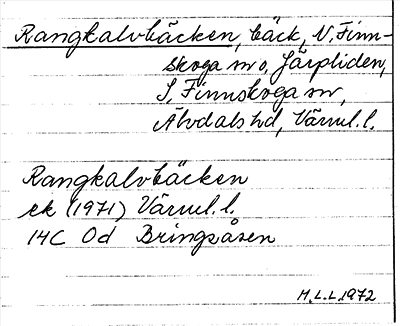 Rangkalvbäcken, bäck, N. Finn-
skoga sn o, Järpliden,
S. Finnskoga sn,
Älvdals hd, Värml. l.
Rangkalvbäcken
ek (1971) Värml. l.
14C Od Bringsåsen
H.L.L. 1972